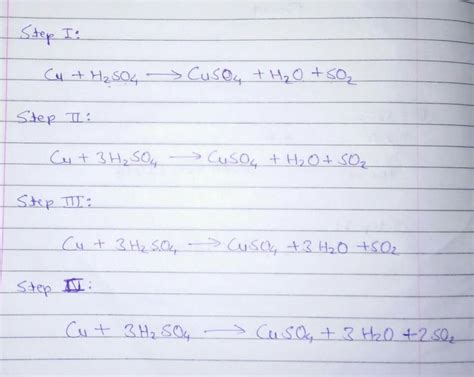 Step I:
Cu + H₂SO₄ → CuSO₄ + H₂O + SO₂
Step II:
Cu + 3H₂SO₄ → CuSO₄ + H₂O + SO₂
Step III:
Cu + 3H₂SO₄ → CuSO₄ + 3H₂O + SO₂
Step IV:
Cu + 3H₂SO₄ → CuSO₄ + 3H₂O + 2SO₂